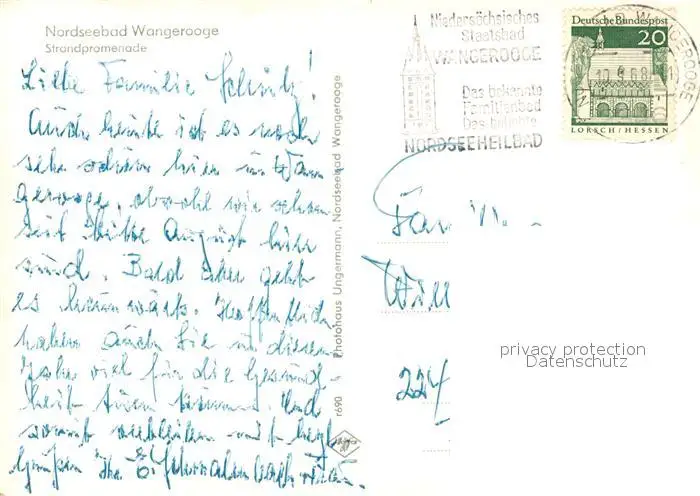 Nordseebad Wangerooge
Strandpromenade
Liebe Familie Schultz!
Auch heute ist es noch
sehr schön hier in Wan
gerooge, obwohl wir schon
seit Mitte August hier
sind. Bald aber geht
es heimwärts. Hoffentlich
haben auch Sie in diesem
Jahr viel für die Gesund-
heit tun können. Und
somit verbleiben mit herzl.
Grüßen Ihr
Photohaus Ungermann, Nordseebad Wangerooge
r690
Niedersächsisches
Staatsbad
WANGEROOGE
Das bekannte
Familienbad
Das beliebte
NORDSEEHEILBAD
Deutsche Bundespost
20
LORSCH/HESSEN
WANGEROOGE
Fam
Will
224
privacy protection
Datenschutz